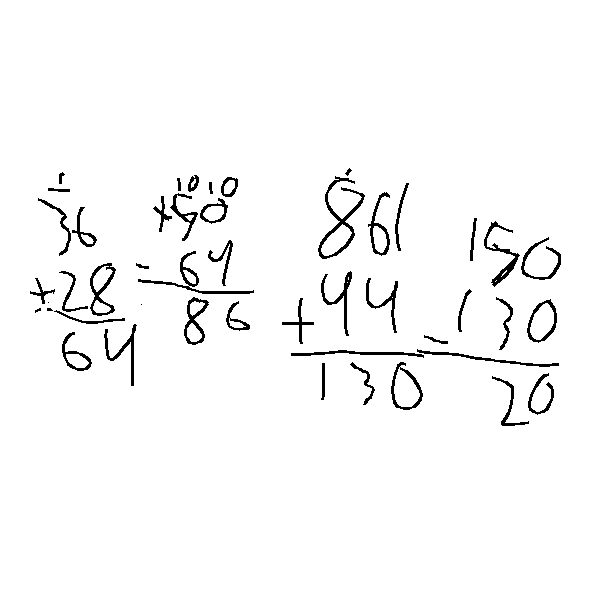 1
36
+28
64
10 10
150
- 64
86
1
861
+44
130
150
- 130
20